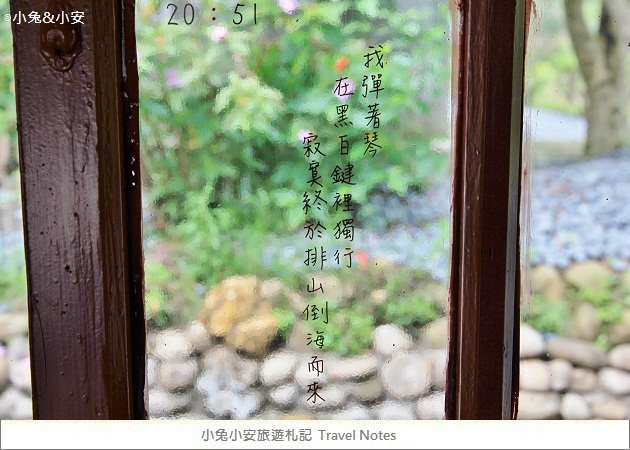 ©小兔&小安
20：51
我彈著琴
在黑白鍵裡獨行
寂寞終於排山倒海而來
小兔小安旅遊札記 Travel Notes